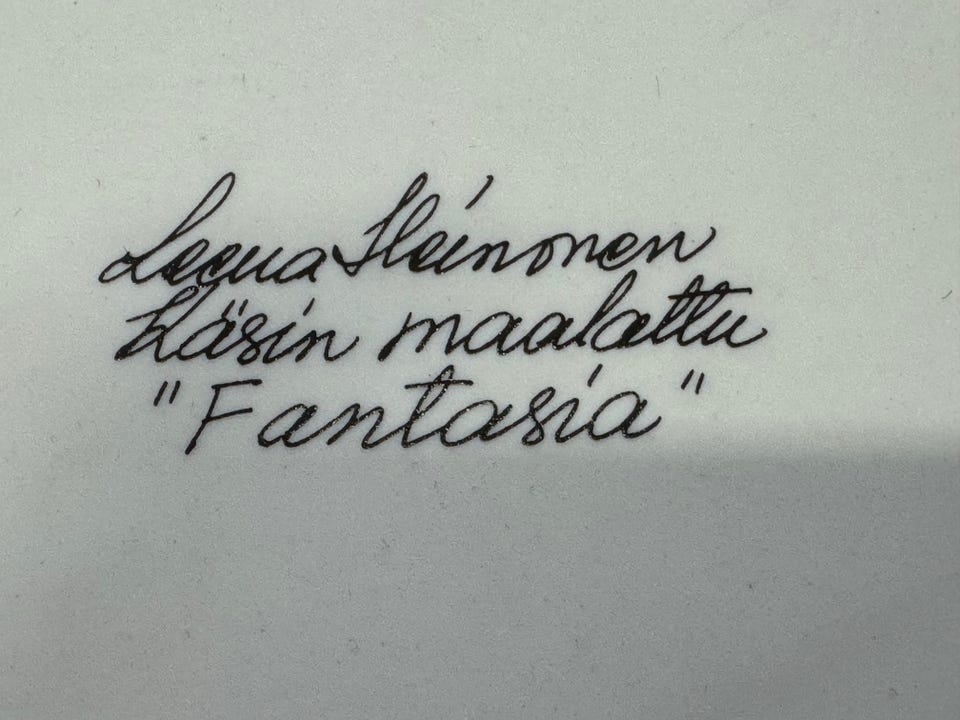 Leena Heinonen
Käsin maalattu
"Fantasia"